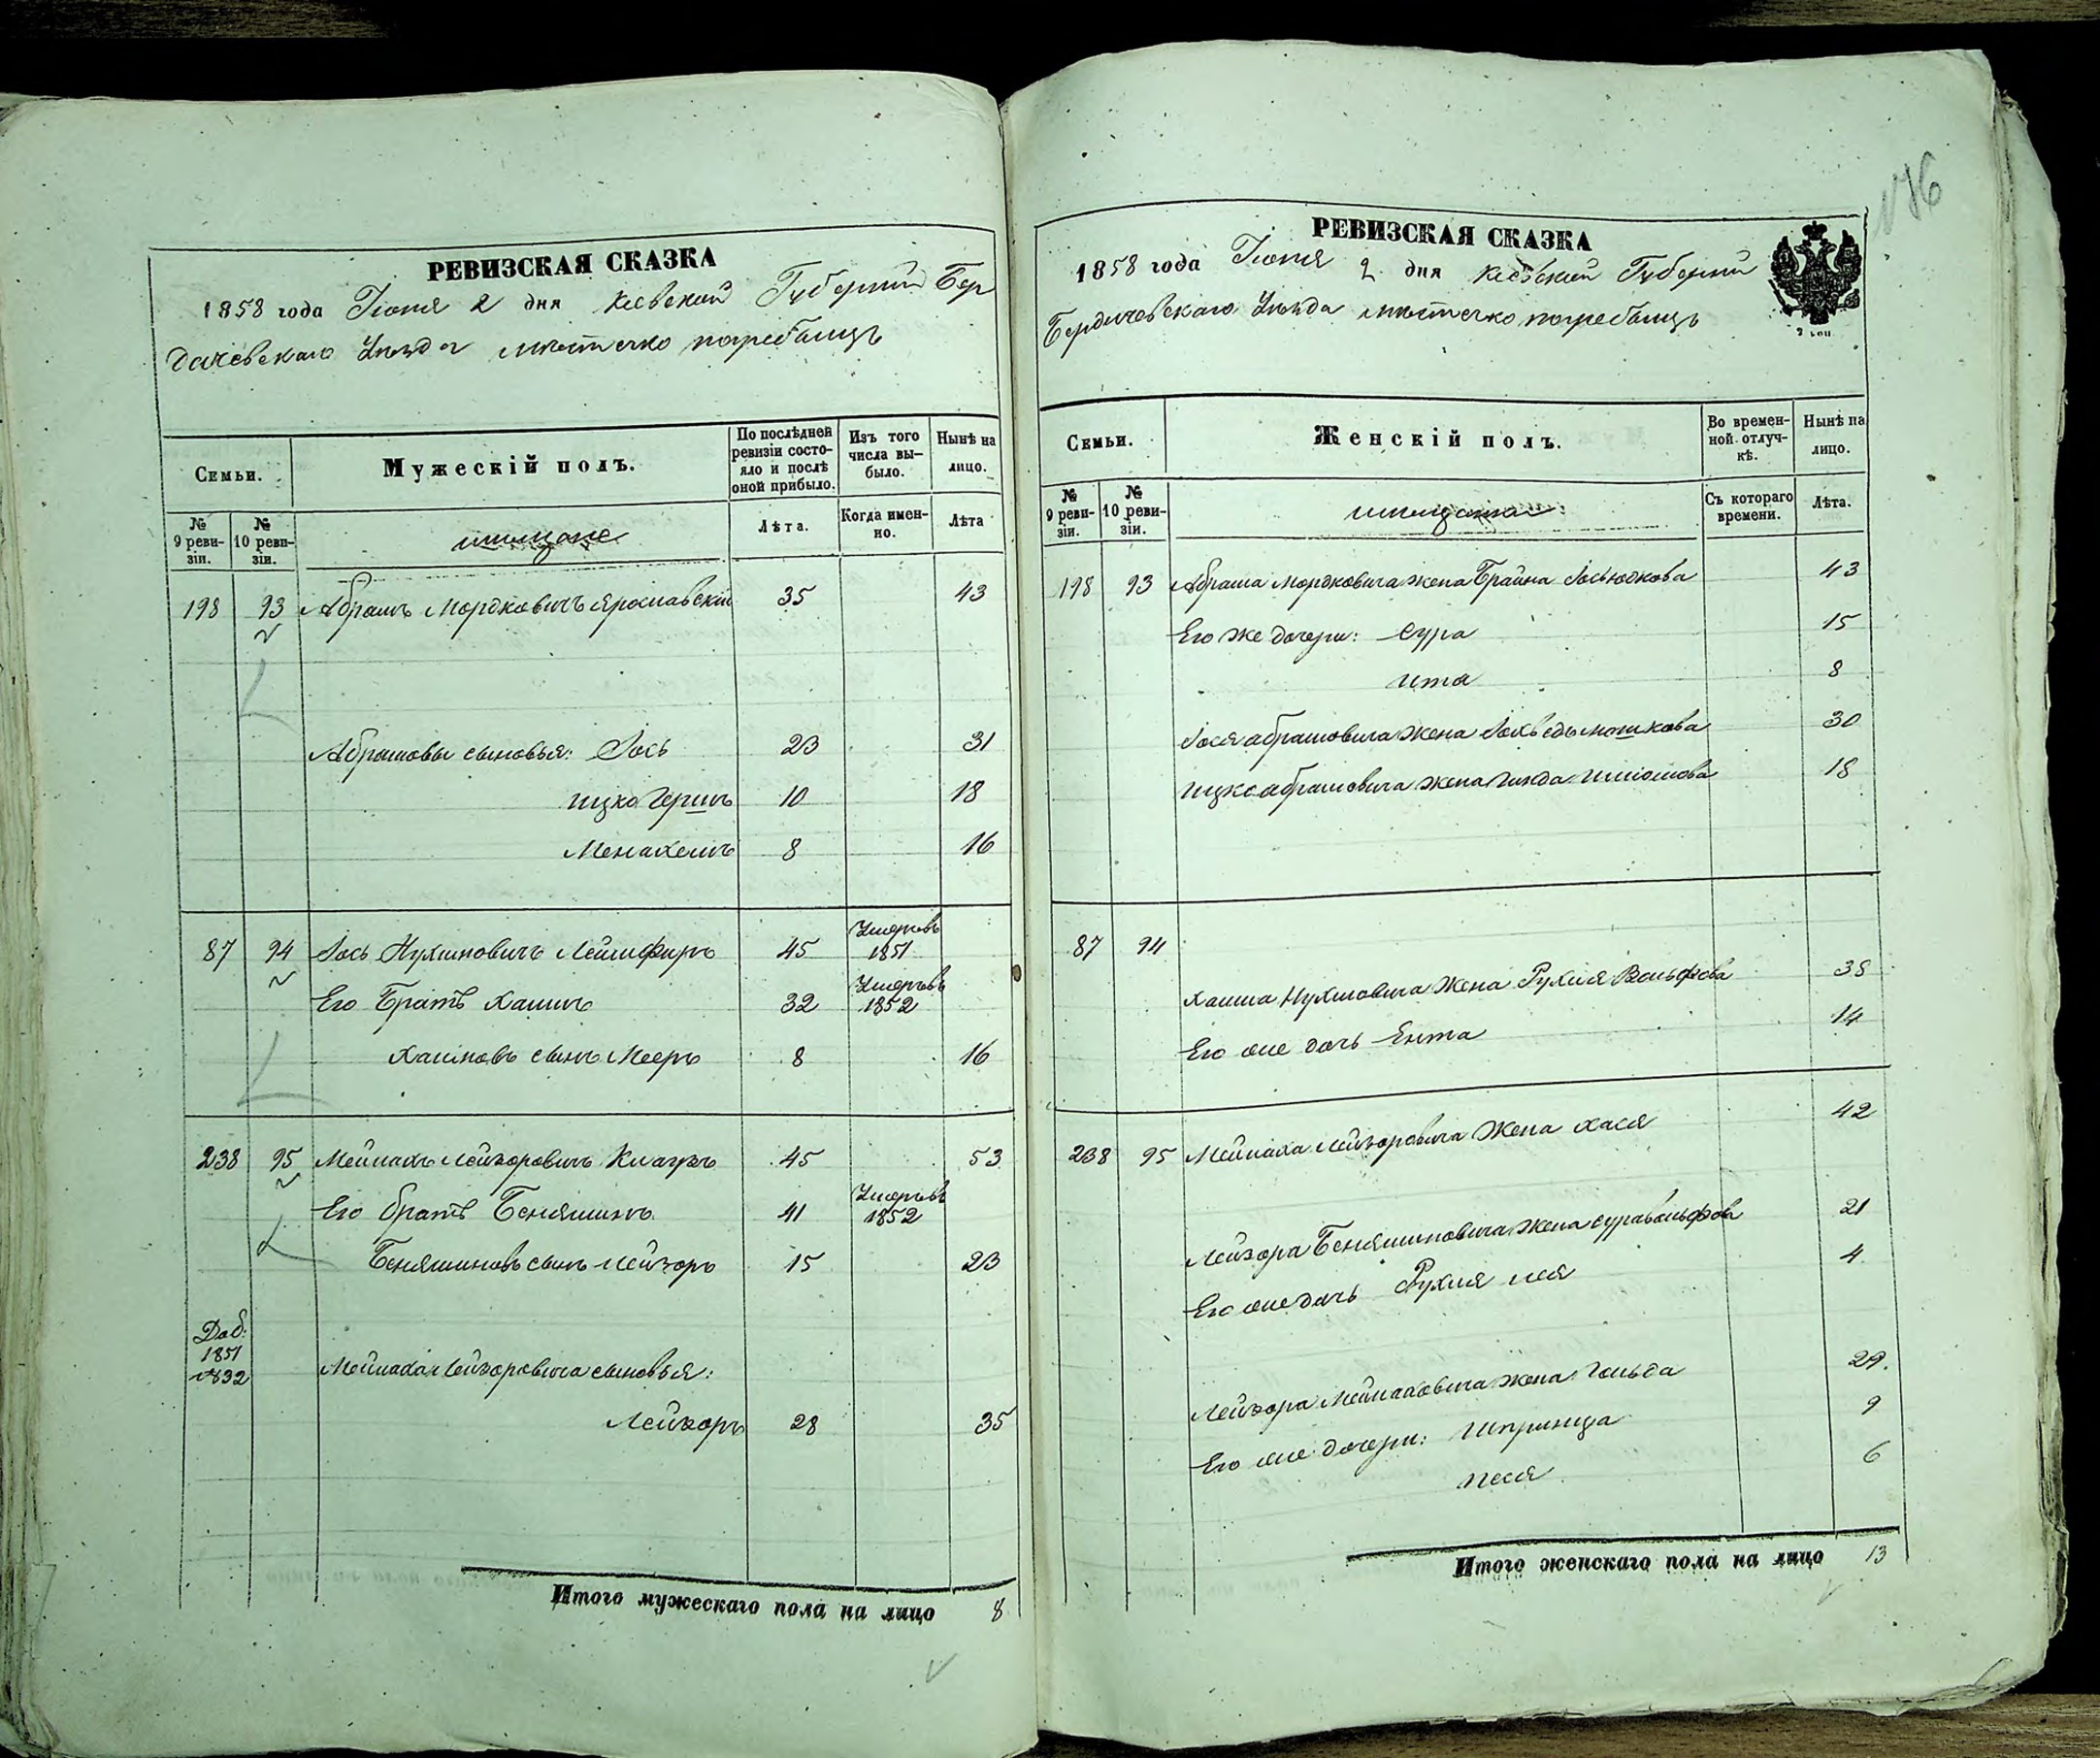 РЕВИЗСКАЯ СКАЗКА
1858 года Іюня 2 дня Кіевской Губерніи Бер
дичевскаго Уѣзда мѣстечко погребыщъ
Семьи.
Мужескій полъ.
По послѣдней ревизіи состояло и послѣ оной прибыло.
Изъ того числа вы-было.
Нынѣ на лицо.
№ 9 реви-зіи.
№ 10 реви-зіи.
мѣщане
Лѣта.
Когда имен-но.
Лѣта
198 93 Абрамъ Мордковичъ Ярославскій 35 43
Абрамовы сыновья: Іось 23 31
Ицко Гершъ 10 18
Менахемъ 8 16
87 94 Іось Нухимовичъ 45 Умеръ въ 1851
Его Братъ Хаимъ 32 Умеръ въ 1852
Хаимовъ сынъ Мееръ 8 16
238 95 Мейлахъ Лейзоровичъ 45 53
Его братъ Беняминъ 41 Умеръ въ 1852
Беняминовъ сынъ Лейзоръ 15 23
Доб.
1851
№832
Мейлаха Лейзоровича сыновья:
Лейзоръ 28 35
Итого мужескаго пола на лицо 8
РЕВИЗСКАЯ СКАЗКА
1858 года Іюня 2 дня Кіевской Губерніи
Бердичевскаго Уѣзда мѣстечко погребыщъ
2 коп
Семьи.
Женскій полъ.
Во времен-ной отлуч-кѣ.
Нынѣ на лицо.
№ 9 реви-зіи.
№ 10 реви-зіи.
мѣщанки
Съ котораго времени.
Лѣта.
198 93 Абрама Мордковича жена Брайна Іосьюдкова 43
Его же дочери: Сура 15
Ита 8
Іося абрамовича жена Іохведь мошкова 30
Ицка абрамовича жена 18
87 94
Хаима Нухимовича жена Рухля Вольфова 38
Его же дочь Ента 14
238 95 Мейлаха Лейзоровича жена Хася 42
Лейзора Беняминовича жена сура вольфова 21
Его же дочь Рухля лея 4
Лейзора Мейлаховича жена Гольда 29
Его же дочери: Шпринца 9
Песя 6
Итого женскаго пола на лицо 13